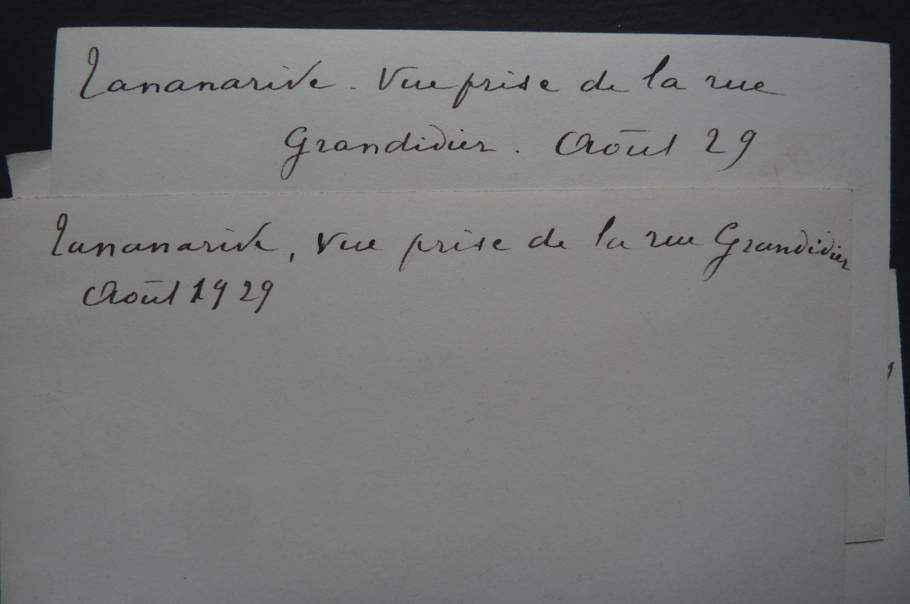 Tananarive. Vue prise de la rue
Grandidier. Août 29
Tananarive, Vue prise de la rue Grandidier
Août 1929